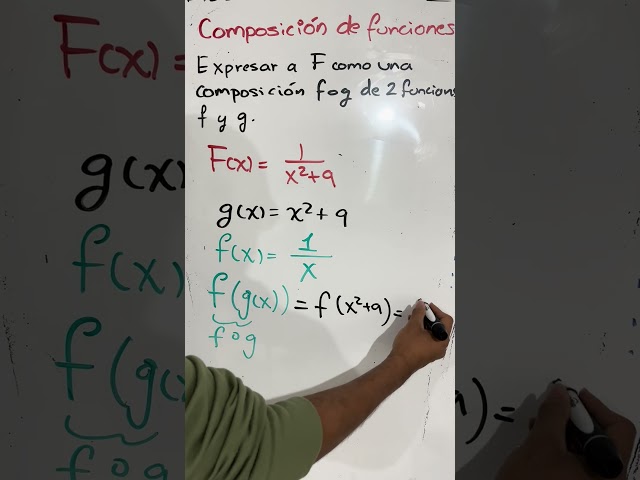 Composición de funciones
Expresar a F como una
composición fog de 2 funcion
f y g.
F(x) = 1 / x²+9
g(x) = x² + 9
f(x) = 1 / x
f(g(x)) = f(x²+9) =
f o g